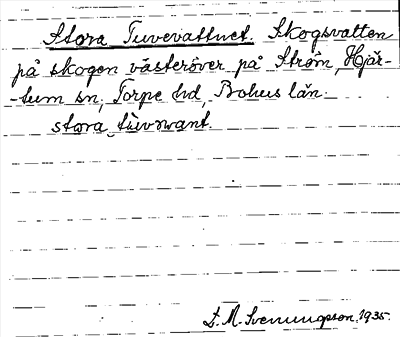 Stora Tuvevattnet. Skogsvatten
på skogen västeröver på Ström, Hjär-
-tum sn, Torpe hd, Bohus län.
stora tùvwant.
L. M. Svenungsson. 1935.